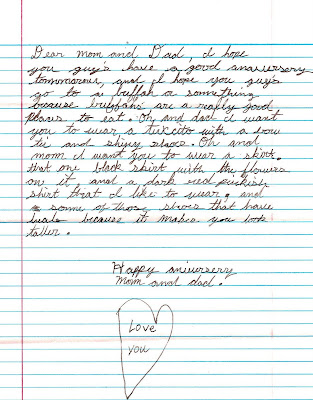 Dear Mom and Dad, I hope
you guys have a good anavursery
tommorow, and I hope you guys
go to a buffah or something
because buffahs are a really good
places to eat. Oh and dad I want
you to wear a tuxcito with a bow
tie and shiny shoes. Oh and
mom I want you to wear a skirt.
that one black skirt with the flowers
on it and a dark red puckish
shirt that I like to wear. and
some of thos shoes that have
heals because it makes you look
taller.
Happy aniursery
Mom and dad.
Love
you